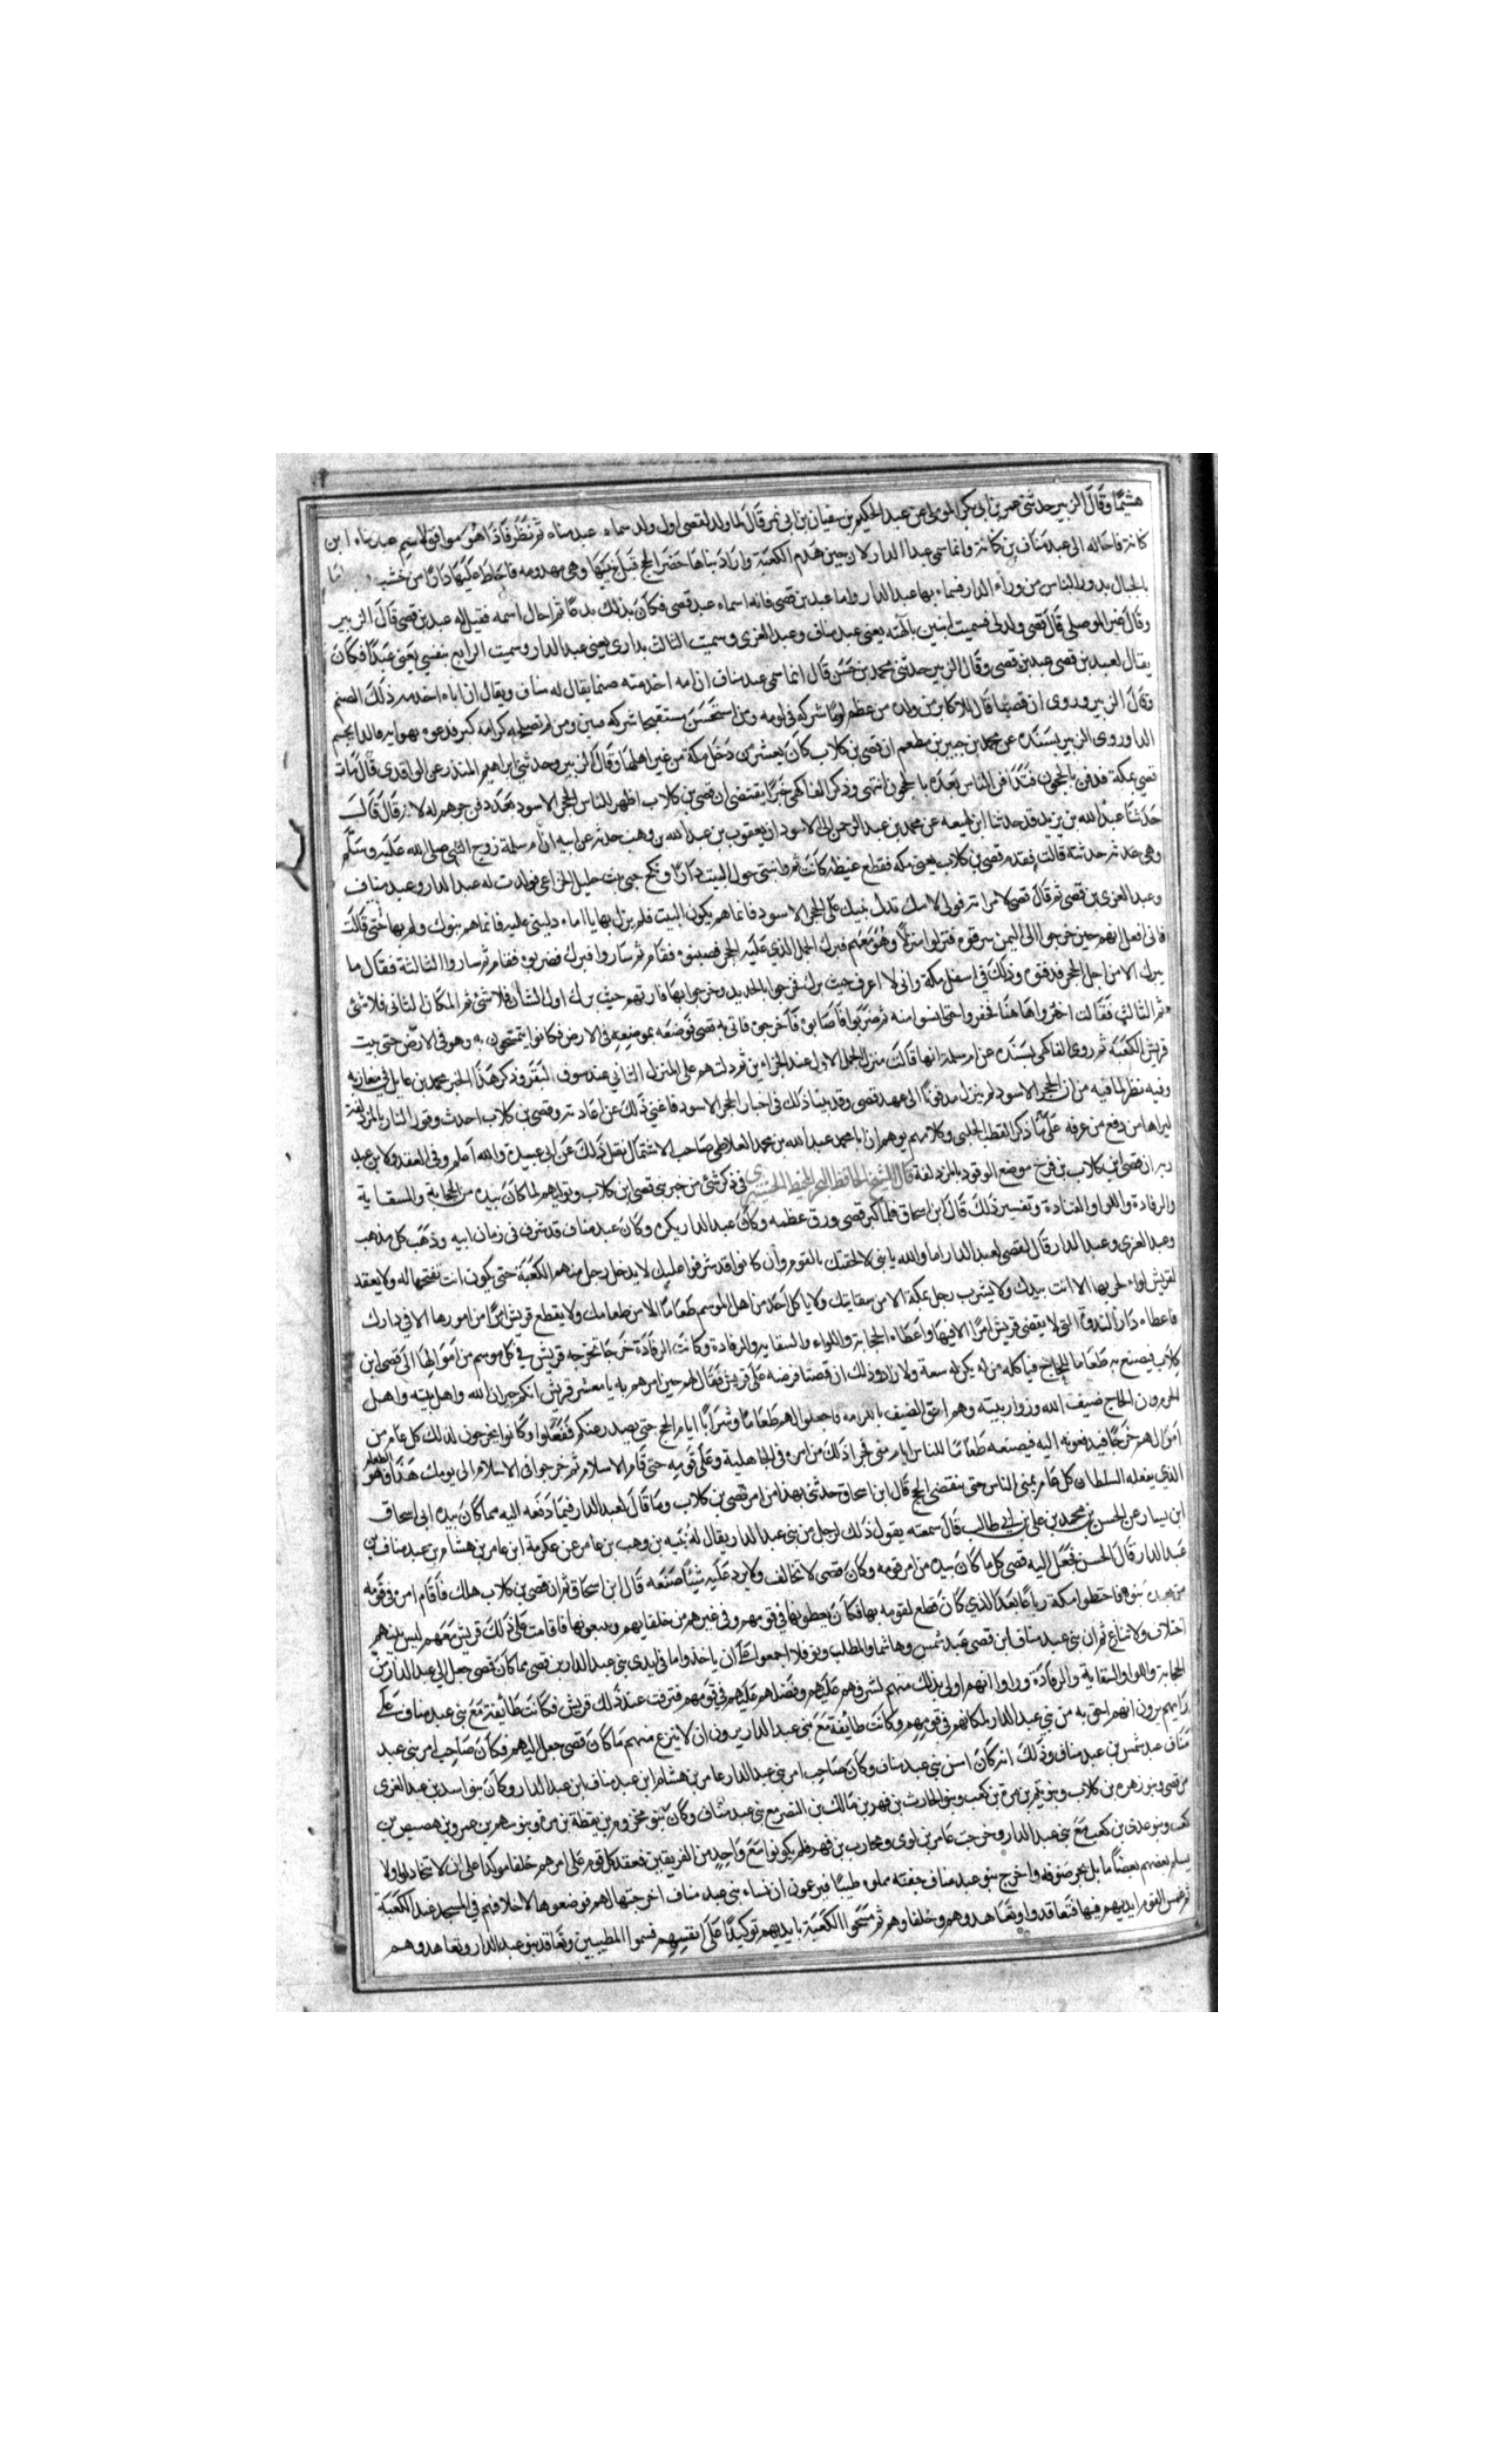 هشيمًا وقال الزبير حدثني عمر بن ابي بكر الموصلي عن عبد الحكيم بن سفيان بن ابي نمر قال لما ولد لقصي اول ولد سماه عبد مناه ثم نظر فاذا هو موافق لاسم عبد مناه ابن
كنانة فاحاله الى عبد مناف بن كنانة وانما سمى عبد الدار لان حين هدم الكعبة واراد بناها حضر الحج قبل يبنيها وهي مهدومه فاحاط دارًا من خشب
بالحبال يدور الناس من وراء الدار فسماه بها عبد الدار واما عبد بن قصي فانه اسماه عبد قصي فكان بذلك بدعًا ثم احال اسمه فقيل له عبد بن قصي قال الزبير
وقال غير الموصلي قال قصي ولد لي فسميت ابنين بآلهته يعني عبد مناف وعبد العزى وسميت الثالث بداري يعني عبد الدار وسميت الرابع بنفسي يعني عبدًا فكان
يقال لعبد بن قصي عبد بن قصي وقال الزبير حدثني محمد بن حسن قال انما سمى عبد مناف ان امه اخدمته صنما يقال له مناف ويقال ان اباه اخدمه ذلك الصنم
وقال الزبير وروى ان قصيًا قال للاكابر من ولده من عظم لومًا شركه في لومه ومن استحسن مستقبحا شركه فيه ومن لم تصلحه كرامة كبر فدعوه بهوانه فالدا يحسم
الدا وروى الزبير بسنده عن محمد بن جبير بن مطعم ان قصي بن كلاب كان يعشر من دخل مكة من غير اهلها وقال الزبير وحدثني ابراهيم المنذر عن الواقدي قال مات
قصي بمكة فدفن بالحجون فتدافن الناس بعده بالحجون انتهى وذكر الفاكهي خبرًا يقتضي ان قصي بن كلاب اظهر للناس الحجر الاسود بعد دفن جرهم له لانه قال
حدثنا عبد الله بن يزيد قد حدثنا ابن لهيعه عن محمد بن عبد الرحمن ابي الاسود ان يعقوب بن عبد الله بن وهب حدثه عن ابيه ان ام سلمة زوج النبي صلى الله عليه وسلم
وهي حدثته قالت فقدم قصي بن كلاب يعني مكه فقطع غيظه كانت ثم وابتنى حول البيت دارًا ونكح حبى بنت حليل الخزاعي فولدت له عبد الدار وعبد مناف
وعبد العزى بن قصي ثم قال قصي لامراته قولي لامك تدل بنيك على الحجر الاسود فانما هم يكون البيت فلم يزل بها يا اماه دليني عليه فانما هم بنوك ولم بها حتى قالت
فاني افعل انهم حين خرجوا الى اليمن سرقوه فنزلوا منزلًا وهو معهم فبرك الجمل الذي عليه الحجر فضربوه فقام ثم ساروا فبرك فضربوه فقام ثم ساروا الثالثة فقال ما
يبرك الا من اجل الحجر فدفنوه وذلك في اسفل مكة واني لا اعرف حيث برك فخرجوا بالحديد وخرجوا بها فارتهم حيث برك اول الشان فلا شئ ثم المكان الثاني فلا شئ
ثم الثالث فقالت احفروا هاهنا فحفروا حتى ايسوا منه ثم ضربوا فاصابوه فاخرجوه فاتى به قصي فوضعه بموضعه في الارض فكانوا يتمسحون به وهو في الارض حتى بنت
قريش الكعبة ثم روى الفاكهي بسنده عن ام سلمة انها قالت منزل الجمل الاول عند الجزارين ثم دلتهم على المنزل الثاني عند سوق البقر وذكر هذا الخبر محمد بن عايذ في مغازيه
وفيه نظر لما فيه من ان الحجر الاسود لم يزل مدفونًا الى عهد قصي وقد بينا ذلك في اخبار الحجر الاسود فاغنى ذلك عن اعادته وقصي بن كلاب احدث وقود النار بالمزدلفة
ليراها من دفع من عرفه على ما ذكر القطب الحلبي وكلامهم يوهم ان ابا محمد عبد الله بن محمد صاحب الاشتمال نقل ذلك عن ابي عبيدة والله اعلم وفي العقد لابن عبد
ربه ان قصي ابن كلاب بن في موضع الوقود بالمزدلفة قال الشيخ الحافظ في ذكر شئ من خبر بني قصي ابن كلاب وتوليهم لما كان بيده من الحجابة والسقاية
والرفادة واللوا والقيادة وتفسير ذلك قال ابن اسحاق فلما كبر قصي ورق عظمه وكان عبد الدار بكره وكان عبد مناف قد شرف في زمان ابيه وذهب كل مذهب
وعبد العزى وعبد الدار قال لقصي لعبد الدار اما والله يا بني لالحقنك بالقوم وان كانوا قد شرفوا عليك لا يدخل رجل منهم الكعبة حتى يكون انت تفتحها له ولا يعقد
لقريش لواء لحربها الا انت بيدك ولا يشرب رجل بمكة الا من سقايتك ولا ياكل احد من اهل الموسم طعامًا الا من طعامك ولا يقطع قريش امرًا من امورها الا في دارك
فاعطاه دار الندوة التي لا يقضي قريش امرًا الا فيها واعطاه الحجابة واللواء والسقايه والرفادة وكانت الرفادة خرجا تخرجه قريش في كل موسم من اموالها الى قصي ابن
كلاب فيصنع به طعاما للحاج فياكله من لم يكن له سعة ولا زاد وذلك ان قصيًا فرضه على قريش فقال لهم حين امرهم به يا معشر قريش انكم جيران الله واهل بيته واهل
الحرم وان الحاج ضيف الله وزوار بيته وهم احق الضيف بالكرامه فاجعلوا لهم طعامًا وشرابًا ايام الحج حتى يصدر عنكم ففعلوا وكانوا يخرجون لذلك كل عام من
اموالهم خرجًا فيدفعونه اليه فيصنعه طعامًا للناس ايام منى فجرا ذلك من امره في الجاهلية وعلى قومه حتى قام الاسلام ثم جرى في الاسلام الى يومك هذا فهو الطعام
الذي يفعله السلطان كل عام بمنى الناس حتى ينقضي الحج قال ابن اسحاق حدثني بهذا من امر قصي بن كلاب وما قال لعبد الدار فيما دفعه اليه مما كان بيده ابي اسحاق
ابن يسار عن الحسن بن محمد بن علي بن ابي طالب قال سمعته يقول ذلك لرجل من بني عبد الدار يقال له نبيه بن وهب بن عامر عن عكرمة ابن عامر بن هشام بن عبد مناف بن
عبد الدار قال الحسن فجعل اليه قصي كل ما كان بيده من امر قومه وكان قصي لا تخالف ولا يرد عليه شيئًا صنعه قال ابن اسحاق ثم ان قصي بن كلاب هلك فاقام امره في قومه
من بعده بنوه فاختطوا مكة رباعًا بعد الذي كان قطع لقومه بها فكانو يعطونها في قومهم وفي غيرهم من حلفايهم ويبيعونها فاقامت على ذلك قريش معهم ليس بينهم
اختلاف ولا تنازع ثم ان بني عبد مناف ابن قصي عبد شمس وهاشما والمطلب ونوفلا اجمعوا على ان ياخذوا ما في ايدي بني عبد الدار بن قصي مما كان قصي جعل الى عبد الدار من
الحجابة واللوا والسقاية والرفادة وراوا انهم اولى بذلك منهم لشرفهم عليهم وفضلهم عليهم في قومهم فتفرقت عند ذلك قريش فكانت طائفة مع بني عبد مناف على
رايهم يرون انهم احق به من بني عبد الدار لمكانهم في قومهم وكانت طائفة مع بني عبد الدار يرون ان لا ينزع منهم ما كان قصي جعل اليهم فكان صاحب امر بني عبد
مناف عبد شمس بن عبد مناف وذلك انه كان اسن بني عبد مناف وكان صاحب امر بني عبد الدار عامر بن هشام ابن عبد مناف ابن عبد الدار وكان بنو اسد بن عبد العزى
بن قصي وبنو زهره بن كلاب وبنو تيم بن مرة بن كعب وبنو الحارث بن فهر بن مالك بن النضر مع بني عبد مناف وكان بنو مخزوم بن يقظة بن مره وبنو سهم بن عمرو بن هصيص بن
كعب وبنو عدي بن كعب مع بني عبد الدار وخرجت عامر بن لوى ومحارب بن فهر فلم يكونوا مع واحد من الفريقين فعقد كل قوم على امرهم حلفا موكدا على ان لا تتخاذلوا ولا
يسلم بعضهم بعضًا ما بل بحر صوفه واخرج بنو عبد مناف جفنة مملوه طيبًا فيزعمون ان نساء بني عبد مناف اخرجتها لهم فوضعوها لاحلافهم في المسجد عند الكعبة
ثم غمس القوم ايديهم فيها فتعاقدوا وتعاهدوا هم وحلفاوهم ثم مسحوا الكعبة بايديهم توكيدًا على انفسهم فسموا المطيبين وتعاقد بنو عبد الدار وتعاهدوا هم